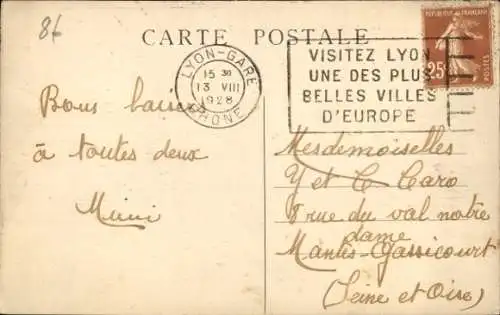 86
CARTE POSTALE
LYON-GARE
15 30
13 VIII
1928
RHONE
VISITEZ LYON
UNE DES PLUS
BELLES VILLES
D'EUROPE
REPUBLIQUE FRANÇAISE
25c
POSTES
Bons baisers
à toutes deux
Mimi
Mesdemoiselles
Y et C Caro
8 rue du val notre
dame
Mantes-Gassicourt
(Seine et Oise)